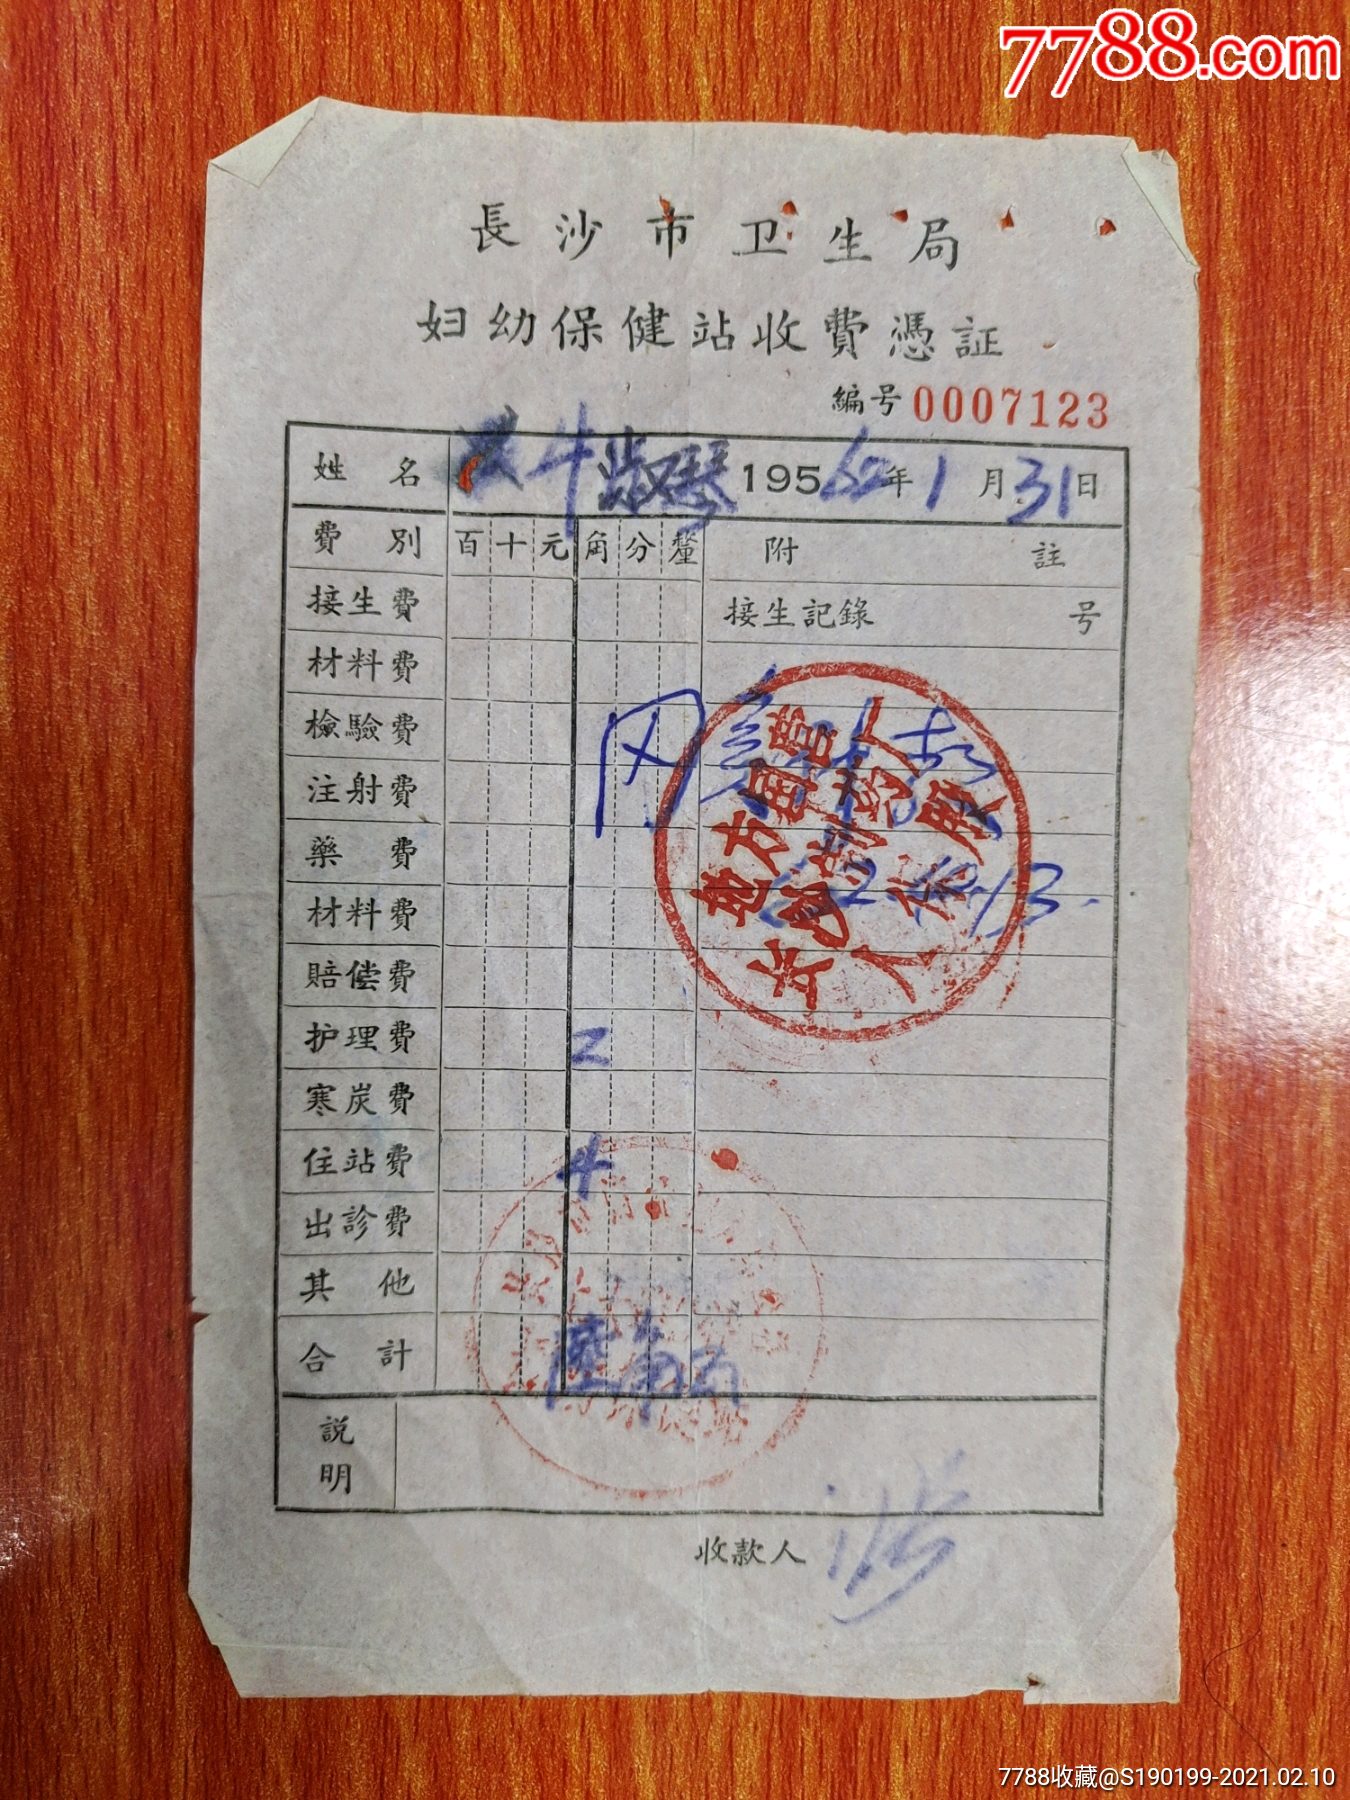 7788.com
長沙市卫生局
妇幼保健站收費憑証
編号 0007123
姓名 淑琴 195 62年1月31日
費別 百 十 元 角 分 釐 附註
接生費 接生記錄 号
材料費
檢驗費
注射費
藥費
材料費
賠偿費
护理費 2
寒炭費
住站費 4
出診費
其他
合計 陸角
説明
收款人
7788收藏@S190199-2021.02.10